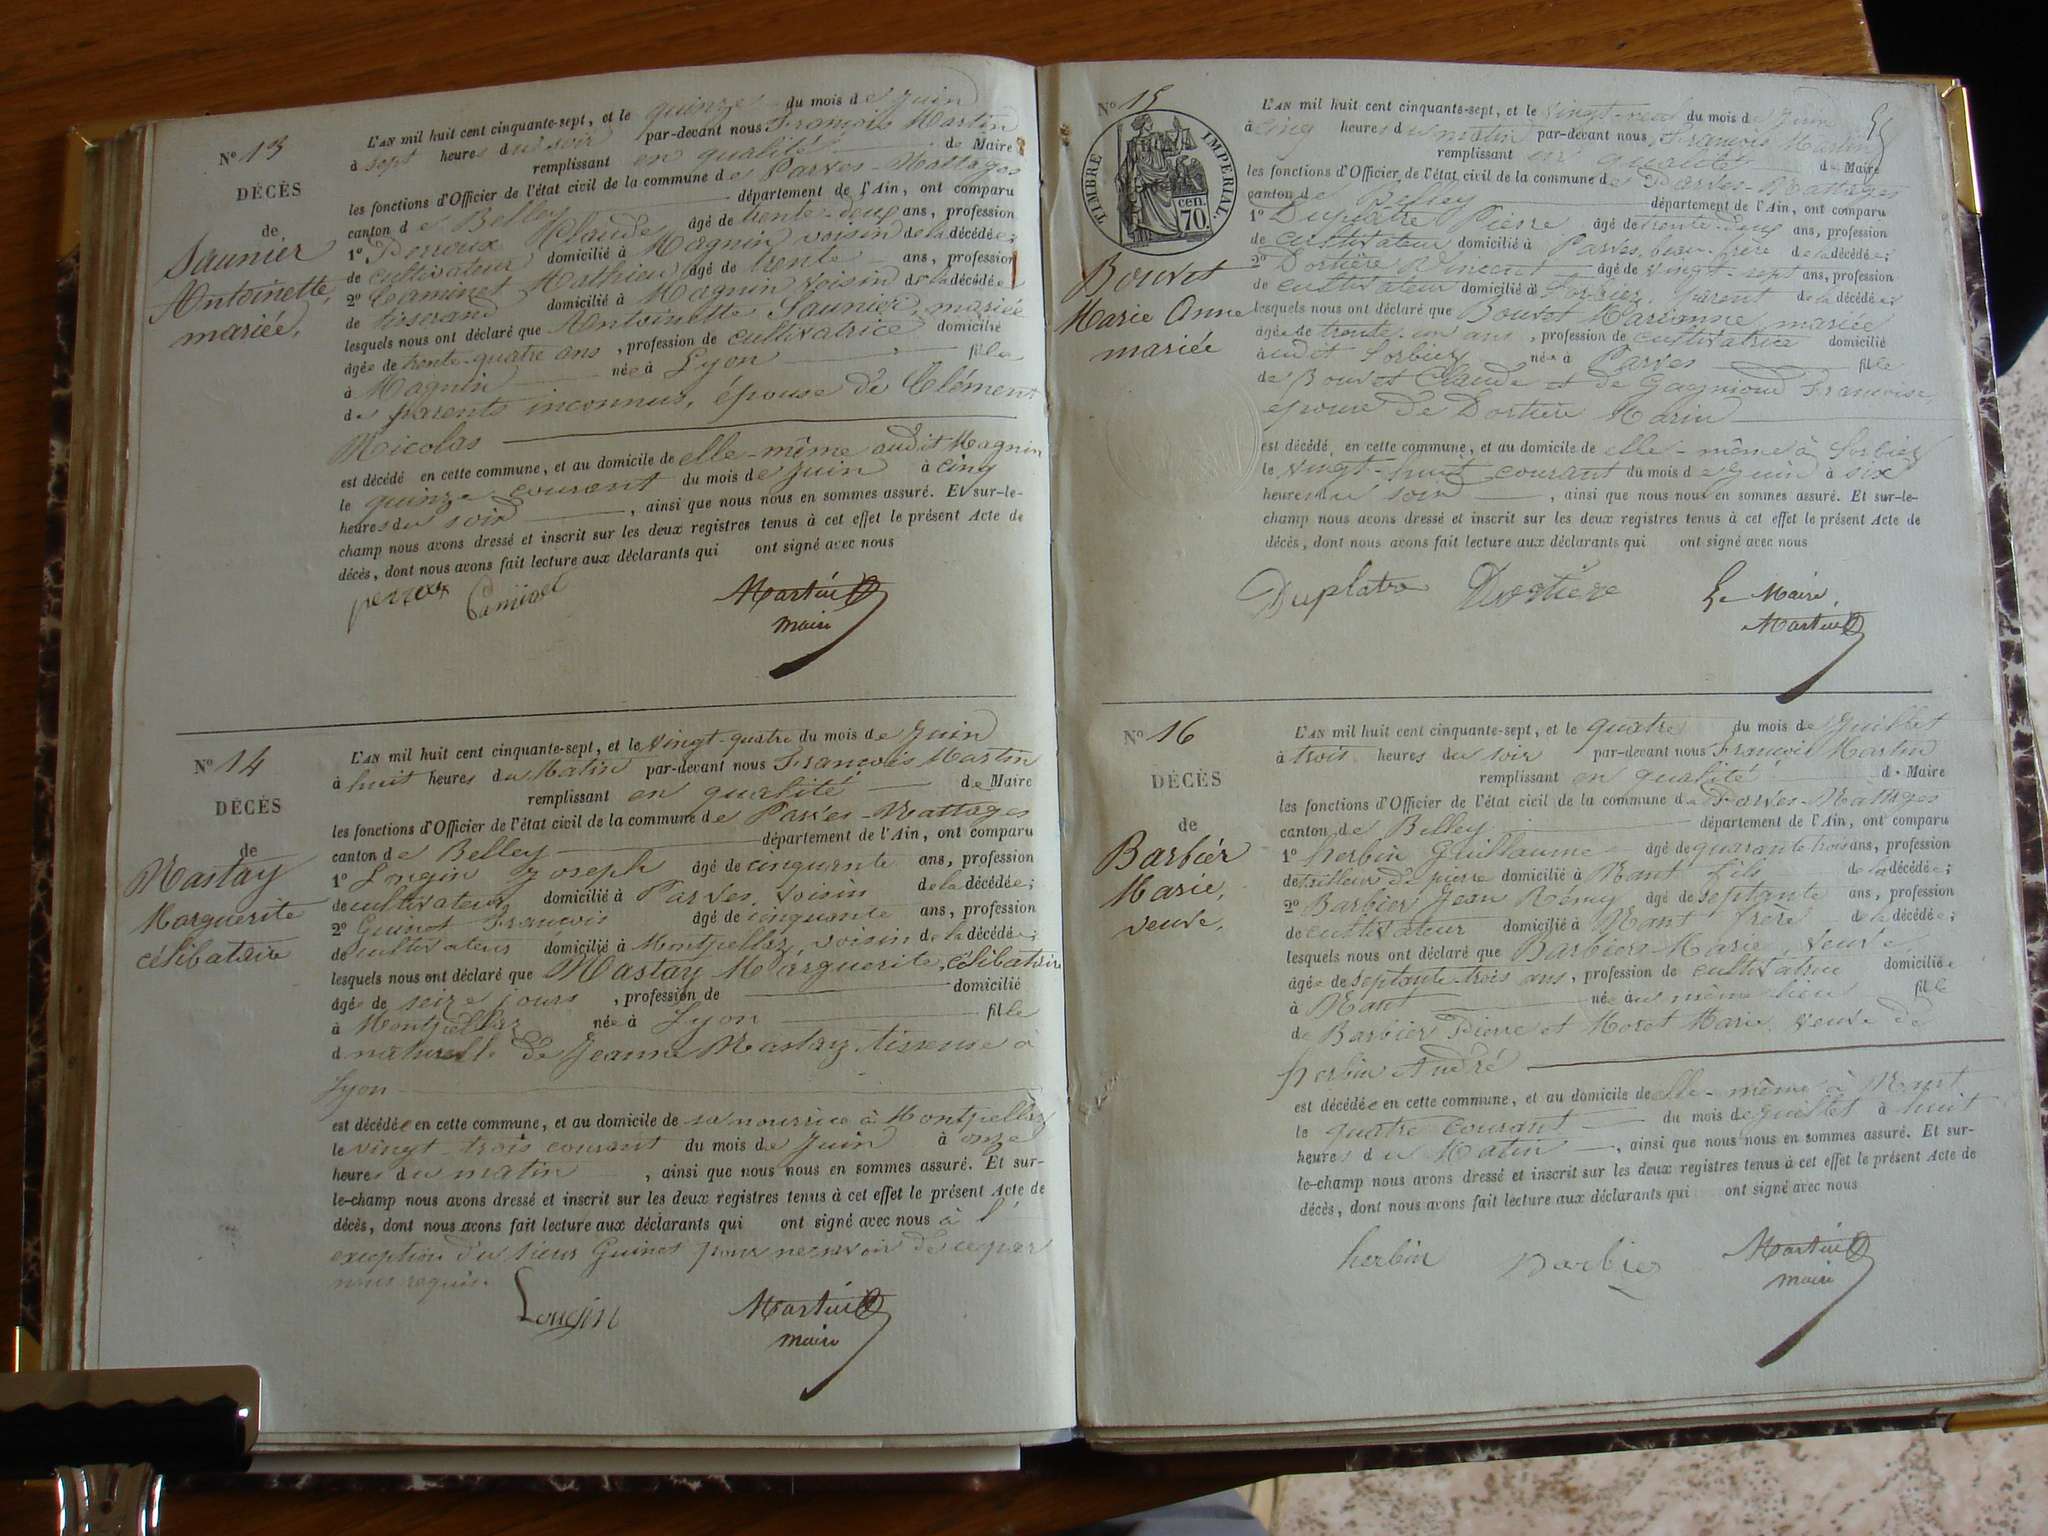 N° 13
DÉCÈS
de
Saunier
Antoinette,
mariée,
L'AN mil huit cent cinquante-sept, et le quinze du mois de Juin
à sept heures du soir par-devant nous François Martin
remplissant en qualité de Maire
les fonctions d'Officier de l'état civil de la commune de Parves-Nattages
canton de Belley département de l'Ain, ont comparu
1° Perroux Claude âgé de trente-deux ans, profession
de cultivateur domicilié à Magnin voisin de la décédée;
2° Caminet Mathieu âgé de trente ans, profession
de tisserand domicilié à Magnin voisin de la décédée
lesquels nous ont déclaré que Antoinette Saunier, mariée
âgée de trente-quatre ans, profession de cultivatrice domicilié
à Magnin née à Lyon fille
de parents inconnus, épouse de Clément
Nicolas
est décédé en cette commune, et au domicile de elle-même audit Magnin
le quinze courant du mois de Juin à cinq
heures du soir, ainsi que nous nous en sommes assuré. Et sur-le-
champ nous avons dressé et inscrit sur les deux registres tenus à cet effet le présent Acte de
décès, dont nous avons fait lecture aux déclarants qui ont signé avec nous
perroux Caminet Martin
maire
N° 14
DÉCÈS
de
Mastay
Marguerite
célibataire
L'AN mil huit cent cinquante-sept, et le vingt-quatre du mois de Juin
à huit heures du Matin par-devant nous François Martin
remplissant en qualité de Maire
les fonctions d'Officier de l'état civil de la commune de Parves-Nattages
canton de Belley département de l'Ain, ont comparu
1° Joseph âgé de cinquante ans, profession
de cultivateur domicilié à Parves, voisin de la décédée;
2° Guinet François âgé de cinquante ans, profession
de cultivateur domicilié à Montpellaz, voisin de la décédée;
lesquels nous ont déclaré que Mastay Marguerite, célibataire
âgée de seize jours, profession de domicilié
à Montpellaz née à Lyon fille
d naturelle de Jeanne Mastay tisseuse à
Lyon
est décédée en cette commune, et au domicile de sa nourrice à Montpellaz
le vingt-trois courant du mois de Juin à onze
heures du matin, ainsi que nous nous en sommes assuré. Et sur-
le-champ nous avons dressé et inscrit sur les deux registres tenus à cet effet le présent Acte de
décès, dont nous avons fait lecture aux déclarants qui ont signé avec nous à l'
exception du sieur Guinet pour ne savoir de ce par
nous requis.
Lougin Martin
maire
N° 15
TIMBRE IMPÉRIAL
70 cen.
Bouvet
Marie Anne
mariée
L'AN mil huit cent cinquante-sept, et le vingt-neuf du mois de Juin
à cinq heures du matin par-devant nous François Martin
remplissant en qualité de Maire
les fonctions d'Officier de l'état civil de la commune de Parves-Nattages
canton de Belley département de l'Ain, ont comparu
1° Duplatre Pierre âgé de trente-deux ans, profession
de cultivateur domicilié à Parves, beau-frère de la décédée;
2° Dortière Vincent âgé de vingt-sept ans, profession
de cultivateur domicilié à Sorbiez, parent de la décédée
lesquels nous ont déclaré que Bouvet Marianne mariée
âgée de trente-un ans, profession de cultivatrice domicilié
audit Sorbiez née à Parves fille
de Bouvet Claude et de Gagnioud Françoise
épouse de Dortière Marin
est décédé, en cette commune, et au domicile de elle-même à Sorbiez
le vingt-huit courant du mois de Juin à six
heures du soir, ainsi que nous nous en sommes assuré. Et sur-le-
champ nous avons dressé et inscrit sur les deux registres tenus à cet effet le présent Acte de
décès, dont nous avons fait lecture aux déclarants qui ont signé avec nous
Duplatre Dortière Le Maire,
Martin
N° 16
DÉCÈS
de
Barbier
Marie,
veuve,
L'AN mil huit cent cinquante-sept, et le quatre du mois de Juillet
à trois heures du soir par-devant nous François Martin
remplissant en qualité de Maire
les fonctions d'Officier de l'état civil de la commune de Parves-Nattages
canton de Belley département de l'Ain, ont comparu
1° herbin Guillaume âgé de quarante trois ans, profession
de tailleur de pierre domicilié à Nant fils de la décédée;
2° Barbier Jean Rémy âgé de septante ans, profession
de cultivateur domicilié à Nant frère de la décédée;
lesquels nous ont déclaré que Barbier Marie, veuve
âgée de septante-trois ans, profession de cultivatrice domiciliée
à Nant née au même lieu fille
de Barbier Pierre et Moret Marie, veuve de
herbin André
est décédée en cette commune, et au domicile de elle-même à Nant
le quatre courant du mois de Juillet à huit
heures du Matin, ainsi que nous nous en sommes assuré. Et sur-
le-champ nous avons dressé et inscrit sur les deux registres tenus à cet effet le présent Acte de
décès, dont nous avons fait lecture aux déclarants qui ont signé avec nous
herbin Barbier Martin
maire